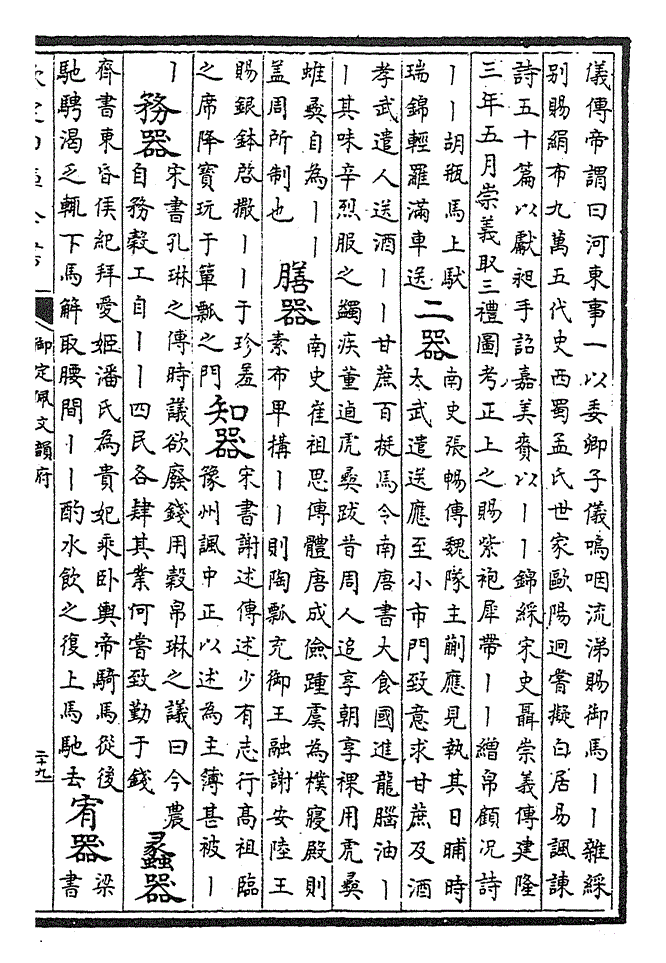 儀傳帝謂曰河東事一以委卿子儀嗚咽流涕賜御馬丨丨雜綵
別賜絹布九萬五代史西蜀孟氏世家歐陽迥嘗擬白居易諷諫
詩五十篇以獻昶手詔嘉美賚以丨丨錦綵宋史聶崇義傳建隆
三年五月崇義取三禮圖考正上之賜紫袍犀帶丨丨繒帛顧况詩
丨丨胡瓶馬上馱
瑞錦輕羅滿車送
二器
南史張暢傳魏隊主蒯應見執其日晡時
太武遣送應至小市門致意求甘蔗及酒
孝武遣人送酒丨丨甘蔗百挺馬令南唐書大食國進龍腦油丨
丨其味辛烈服之蠲疾董逌虎彝跋昔周人追享朝享祼用虎彝
蜼彝自為丨丨
盖周所制也
膳器
南史崔祖思傳體唐成儉踵虞為樸寢殿則
素布畢構丨丨則陶瓢充御王融謝安陸王
賜銀鉢啓撒丨丨于珍羞
之席降寶玩于簞瓢之門
知器
宋書謝述傳述少有志行高祖臨
豫州諷中正以述為主簿甚被丨
丨
務器
宋書孔琳之傳時議欲廢錢用穀帛琳之議曰今農
自務穀工自丨丨四民各肆其業何嘗致勤于錢
蟊器
齊書東昏侯紀拜愛姬潘氏為貴妃乘卧輿帝騎馬從後
馳騁渴乏輒下馬解取腰間丨丨酌水飲之復上馬馳去
宥器
梁
書
御定佩文韻府
二十九